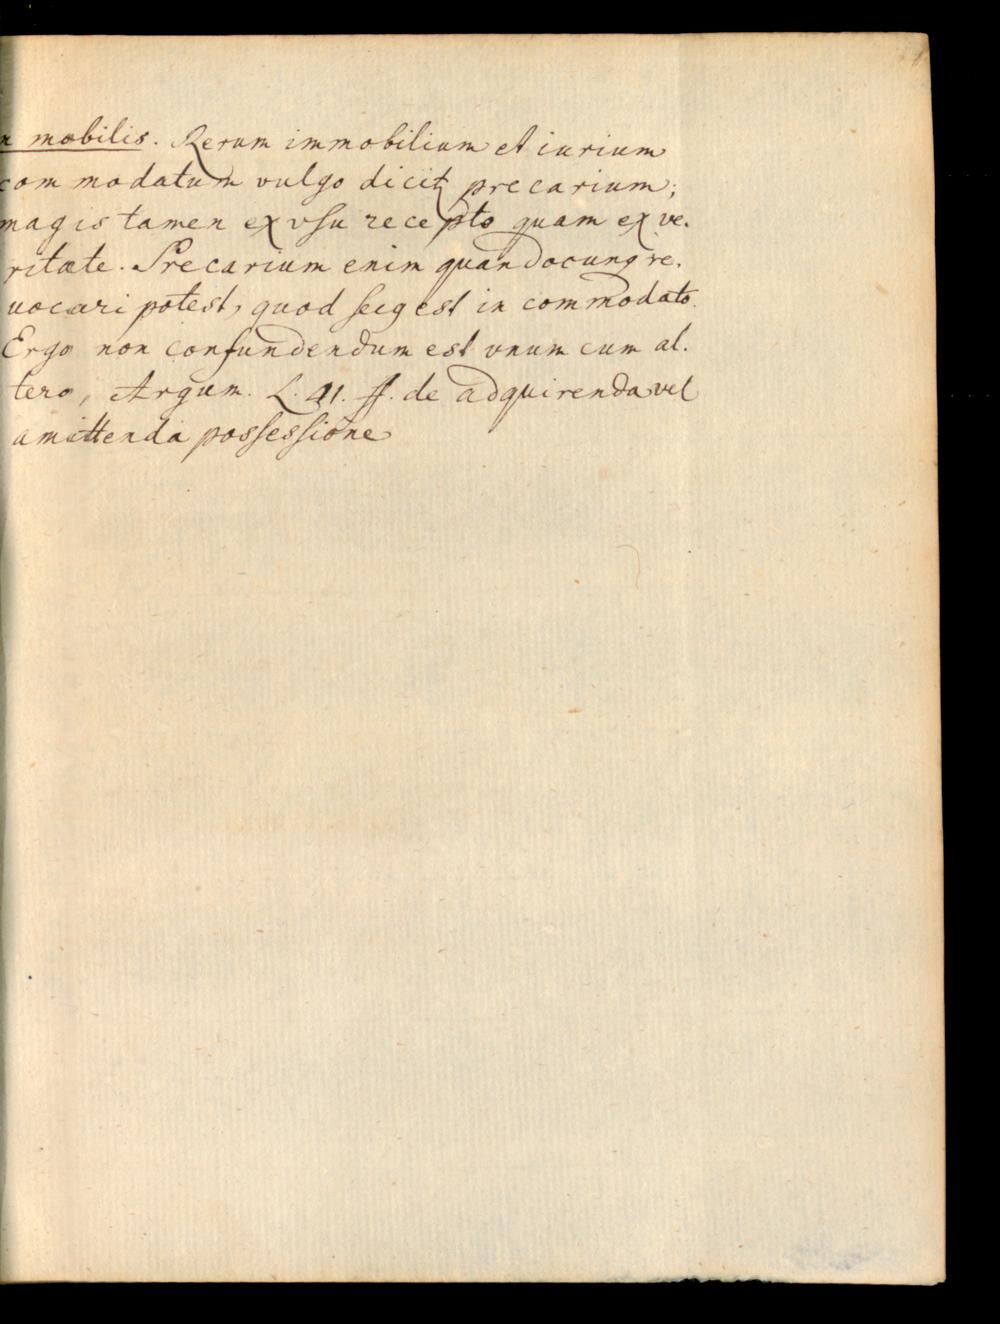 mobilis. Rerum immobilium et iurium
commodatum vulgo dicit precarium;
magis tamen ex vsu recepto quam ex ve-
ritate. Precarium enim quandocunq re-
uocari potest, quod est in commodato.
Ergo non confundendum est vnum cum al-
tero, Argum. L. 41. ff. de adquirenda vel
amittenda possessione